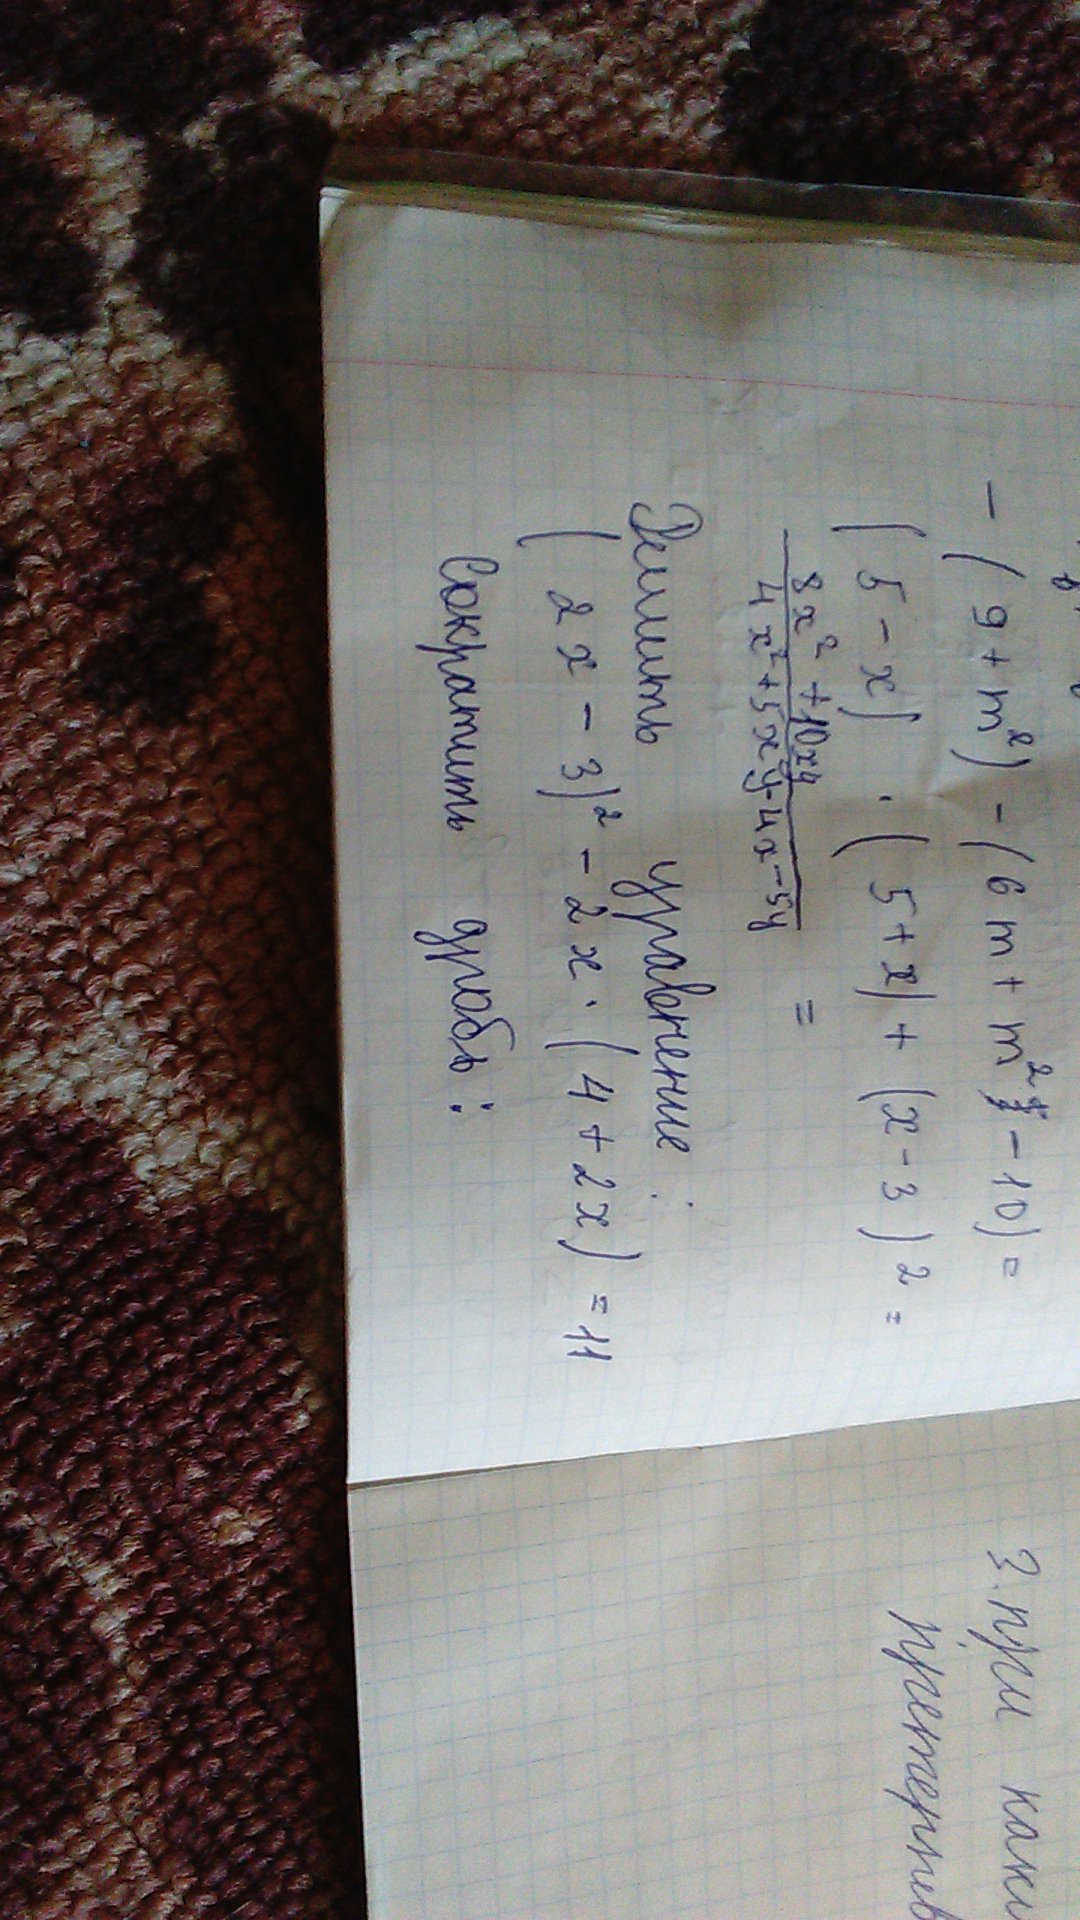 - (9 + m²) - (6m + m² - 10) =
(5 - x) · (5 + x) + (x - 3) 2 =
8x² + 10xy
4x² + 5xy - 4x - 5y =
Решить уравнение:
(2x - 3)² - 2x · (4 + 2x) = 11
Сократить дробь:
3. при